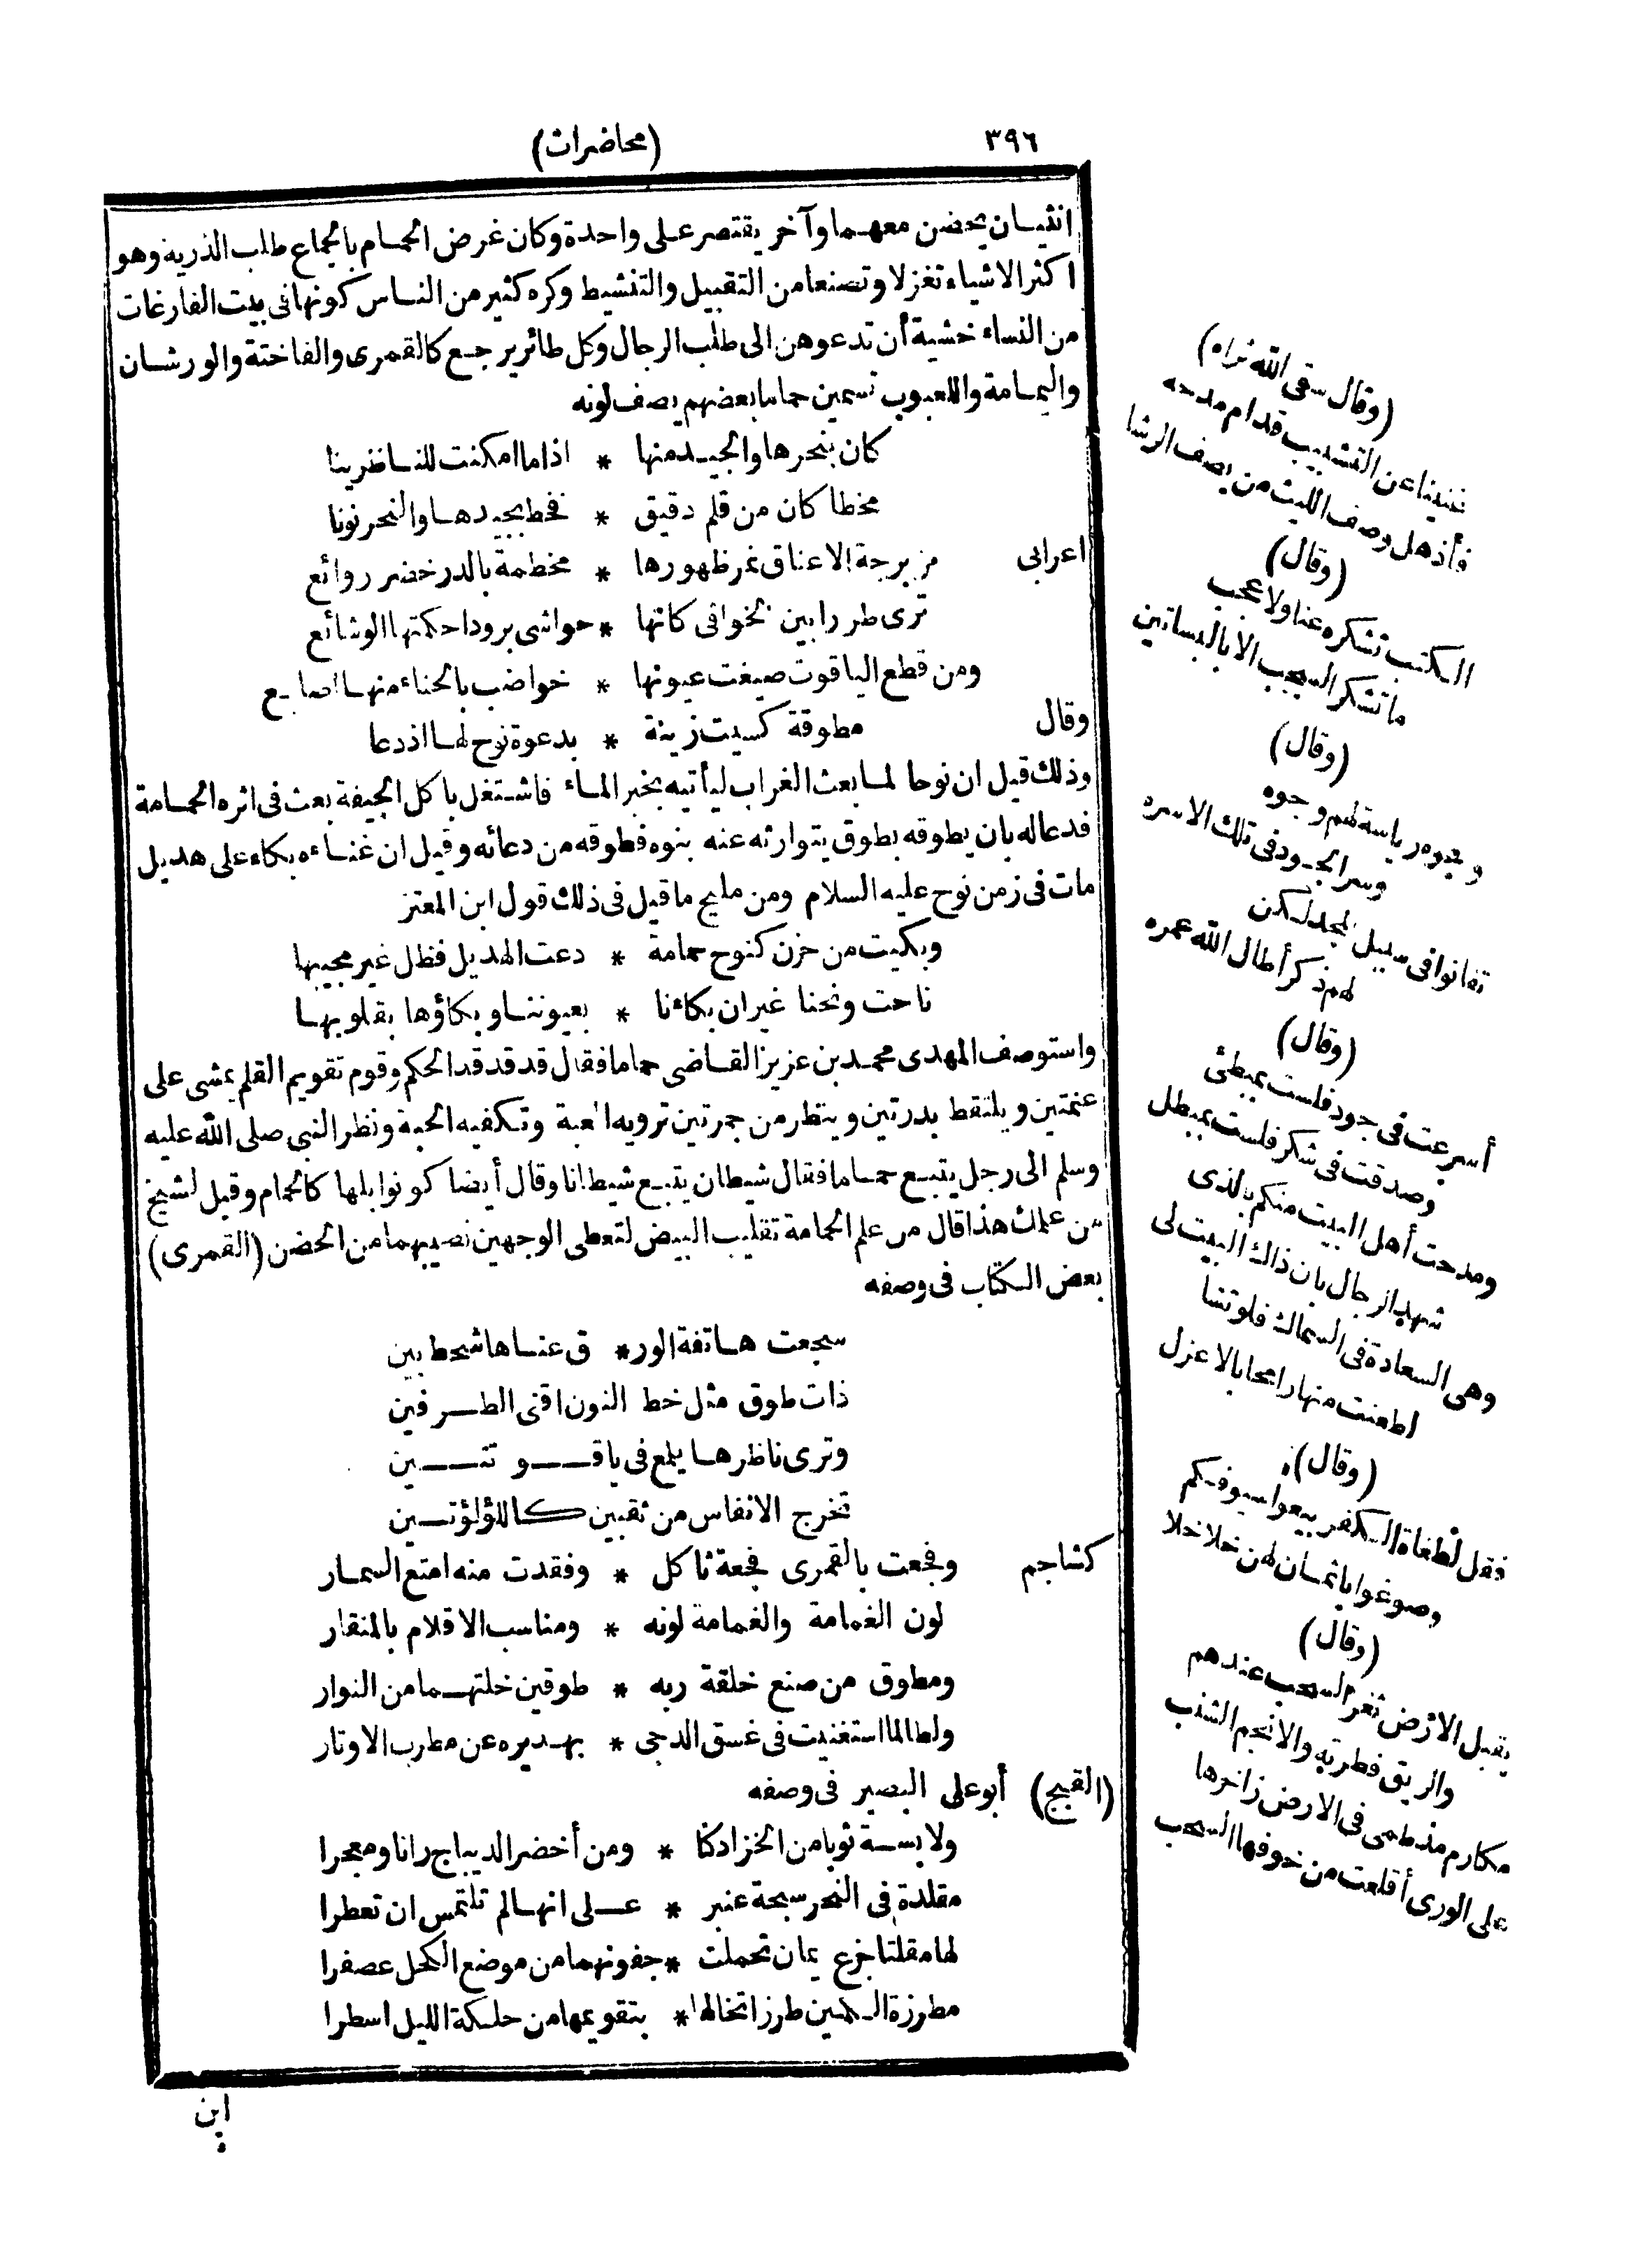 ٣٩٦
(محاضرات)
انثيان يحضن معهما وآخر يقتصر على واحدة وكان غرض الحمام بالجماع طلب الذرية وهو
اكثر الاشياء تغزلا وتصنعا من التقبيل والتنشيط وكره كثير من الناس كونها فى بيت الفارغات
من النساء خشية أن تدعوهن الى طلب الرجال وكل طائر يرجع كالقمرى والفاختة والورشان
واليمامة واللعبوب تسمين حماما بعضهم يصف لونه
كان بنحرها والجيد منها * اذا ما امكنت للناظرينا
مخطا كان من قلم دقيق * فخط بجيدها والنحر نونا
اعرابى مزبرجة الاعناق نمر ظهورها * مخطمة بالدر خضر روائع
ترى طررا بين الخوافى كانها * حواشى برود احكمتها الوشائع
ومن قطع الياقوت صيغت عيونها * خواضب بالحناء منها اصابع
وقال مطوقة كسيت زينة * بدعوة نوح لها اذ دعا
وذلك قيل ان نوحا لما بعث الغراب ليأتيه بخبر الماء فاشتغل باكل الجيفة بعث فى اثره الحمامة
فدعا له بان يطوقه بطوق يتوارثه عنه بنوه فطوقه من دعائه وقيل ان غناءه بكاء على هديل
مات فى زمن نوح عليه السلام ومن مليح ما قيل فى ذلك قول ابن المعتز
وبكيت من حزن كنوح حمامة * دعت الهديل فظل غير مجيبها
ناحت ونحنا غير ان بكاءنا * بعيوننا وبكاؤها بقلوبها
واستوصف المهدى محمد بن عزيز القاضى حماما فقال قد قد قد الحكم وقوم تقويم القلم يمشى على
عنمتين ويلتقط بدرتين وينظر من جمرتين ترويه العبة وتكفيه الحبة ونظر النبى صلى الله عليه
وسلم الى رجل يتبع حماما فقال شيطان يتبع شيطانا وقال أيضا كونوا بلها كالحمام وقيل لشيخ
من علمك هذا قال من علم الحمامة تقليب البيض لتعطى الوجهين نصيبهما من الحضن (القمرى)
بعض الكتاب فى وصفه
سجعت هاتفة الور * ق عناها شحط بين
ذات طوق مثل خط النون اقنى الطرفين
وترى ناظرها يلمع فى ياقوتتين
تخرج الانفاس من ثقبين كاللؤلؤتين
كشاجم وفجعت بالقمرى فجعة ثاكل * وفقدت منه امتع السمار
لون الغمامة والغمامة لونه * ومناسب الاقلام بالمنقار
ومطوق من صنع خلقة ربه * طوقين خلتهما من النوار
ولطالما استغنيت فى غسق الدجى * بهديره عن مطرب الاوتار
(القبج) أبو على البصير فى وصفه
ولابسة ثوبا من الخز ادكنا * ومن أخضر الديباج رانا ومعجرا
مقلدة فى النحر سبحة عنبر * على انها لم تلتمس ان تعطرا
لها مقلتا جزع يمان تحملت * جفونهما من موضع الكحل عصفرا
مطرزة الكمين طرزا تخالها * بتقويمها من حلكة الليل اسطرا
ابن
(وقال سقى الله ثراه)
ثنينا عن التشبيب قدام مدحه
فأذهل وصف الليث من يصف الرشا
(وقال)
الكتب تشكره عنا ولا عجب
ما تشكر السحب الا بالبساتين
(وقال)
وجوه رياسة لهم وجوه
وسر الجود فى تلك الاسره
تفانوا فى سبيل المجد لكن
لهم ذكر أطال الله عمره
(وقال)
أسرعت فى جود فلست بمبطئ
وصدقت فى شكر فلست بمبطل
ومدحت أهل البيت منكم بالذى
شهد الرجال بان ذاك البيت لى
وهى السعادة فى السماك فلو تشا
لطعنت منها رامحا بالاعزل
(وقال)
فقل لطغاة الكفر بيعوا سيوفكم
وصوغوا باثمان لهن خلاخلا
(وقال)
يقبل الارض ثغر السحب عندهم
والريق قطرته والانجم الشنب
مكارم مذ طمى فى الارض زاخرها
على الورى أقلعت من خوفها السحب